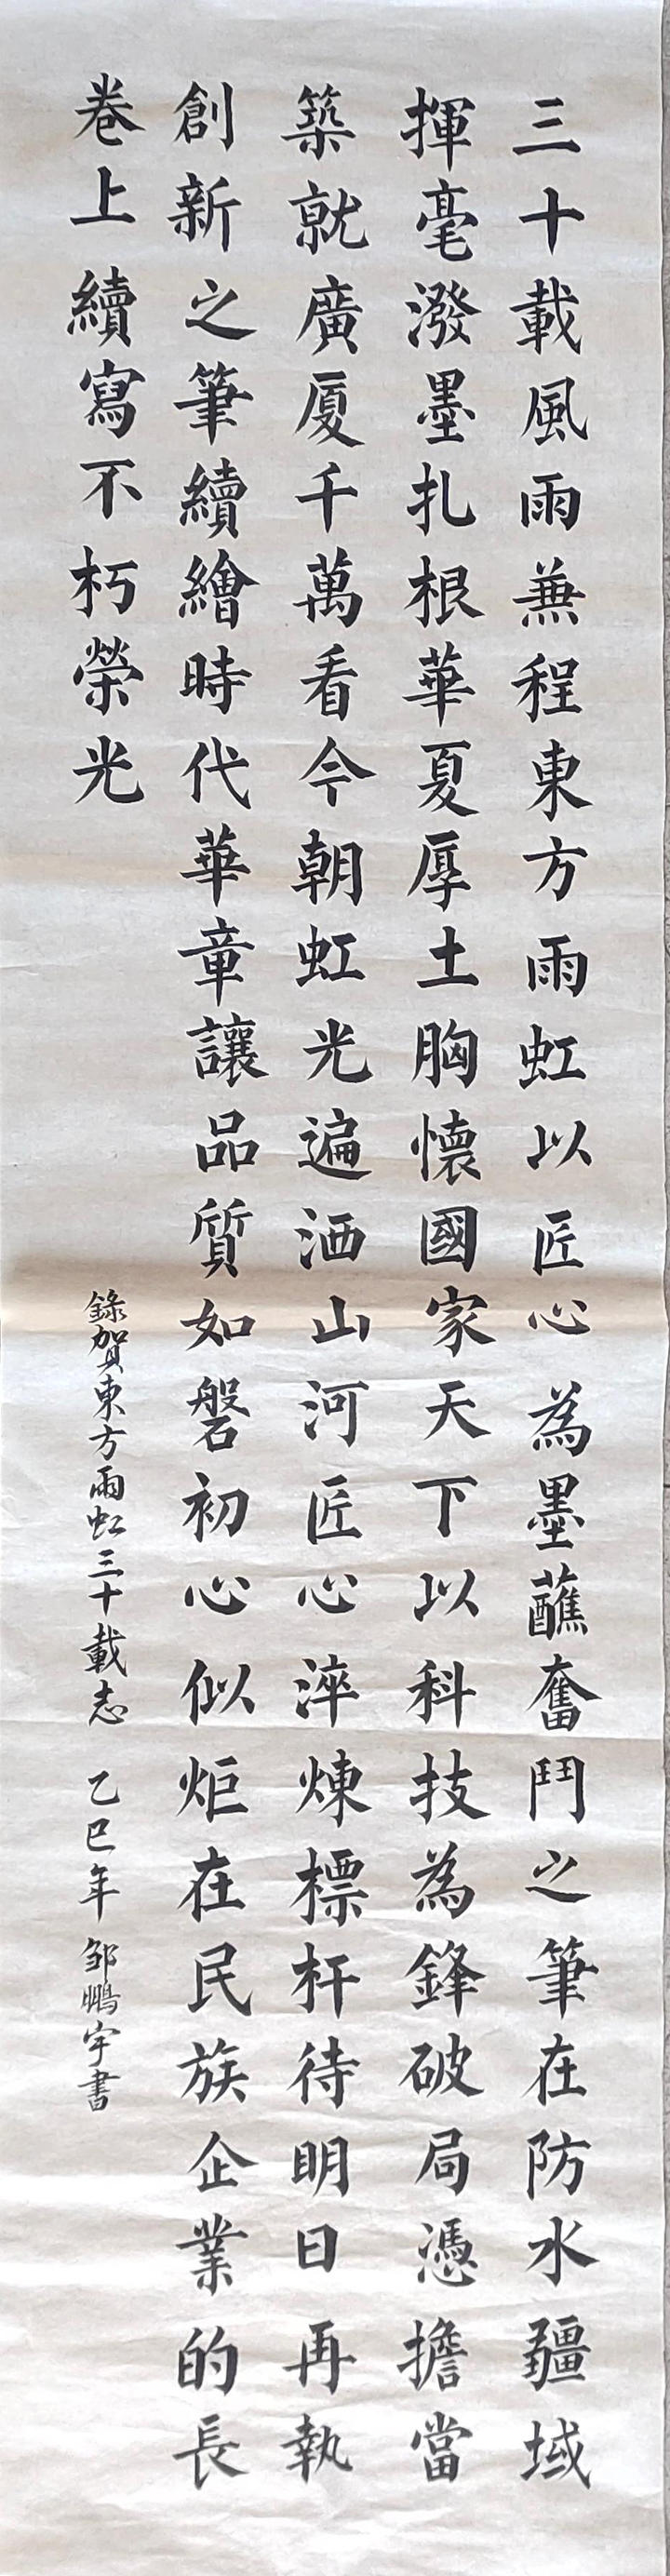 三十載風雨兼程東方雨虹以匠心為墨蘸奮鬥之筆在防水疆域
揮毫潑墨扎根華夏厚土胸懷國家天下以科技為鋒破局憑擔當
築就廣厦千萬看今朝虹光遍洒山河匠心淬煉標杆待明日再執
創新之筆續繪時代華章讓品質如磐初心似炬在民族企業的長
卷上續寫不朽榮光
錄賀東方雨虹三十載志 乙巳年 邹鵬宇書